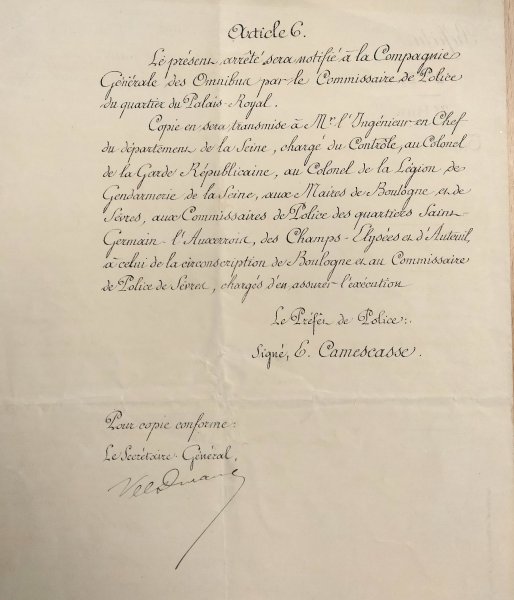 Article 6.
Le présent arrêté sera notifié à la Compagnie
Générale des Omnibus par le Commissaire de Police
du quartier du Palais-Royal.
Copie en sera transmise à Mr. l'Ingénieur en Chef
du département de la Seine, chargé du Contrôle, au Colonel
de la Garde Républicaine, au Colonel de la Légion de
Gendarmerie de la Seine, aux Maires de Boulogne et de
Sèvres, aux Commissaires de Police des quartiers Saint-
Germain-l'Auxerrois, des Champs-Elysées et d'Auteuil,
à celui de la circonscription de Boulogne et au Commissaire
de Police de Sèvres, chargés d'en assurer l'exécution
Le Préfet de Police:
Signé, E. Camescasse.
Pour copie conforme:
Le Secrétaire Général,